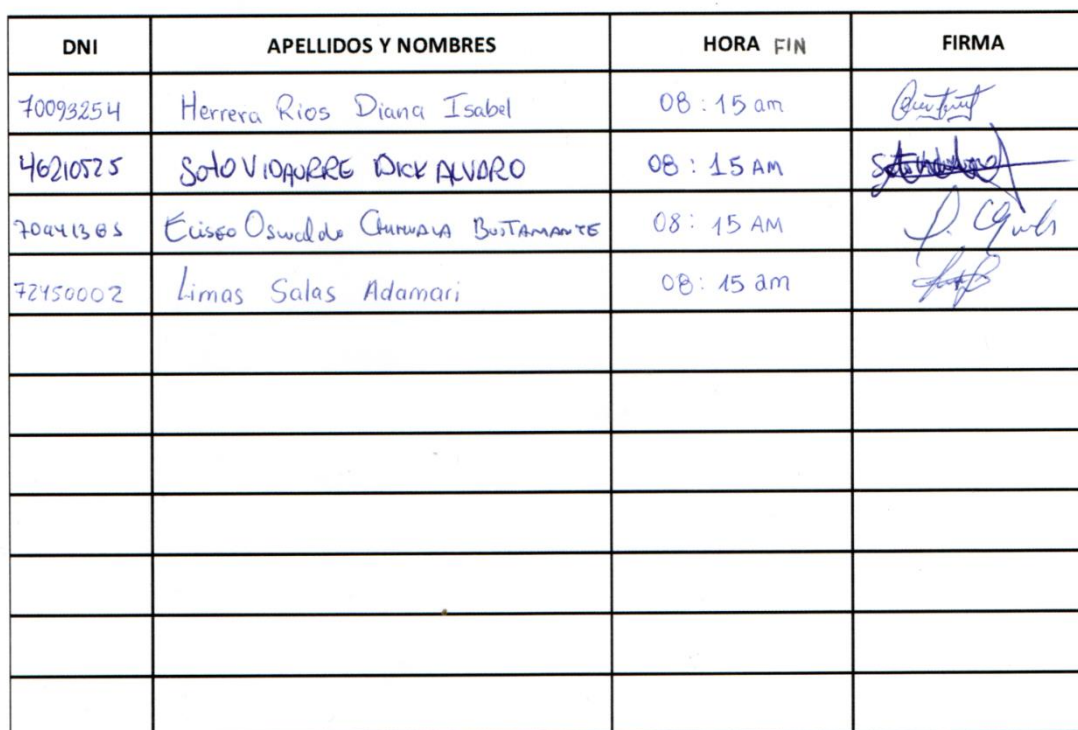 DNI APELLIDOS Y NOMBRES HORA FIN FIRMA
70093254 Herrera Rios Diana Isabel 08:15 am
46210525 Soto VIDAURRE DICK ALVARO 08:15 AM
Eliseo Oswaldo BUSTAMANTE 08:15 AM
72450002 Limas Salas Adamari 08:15 am